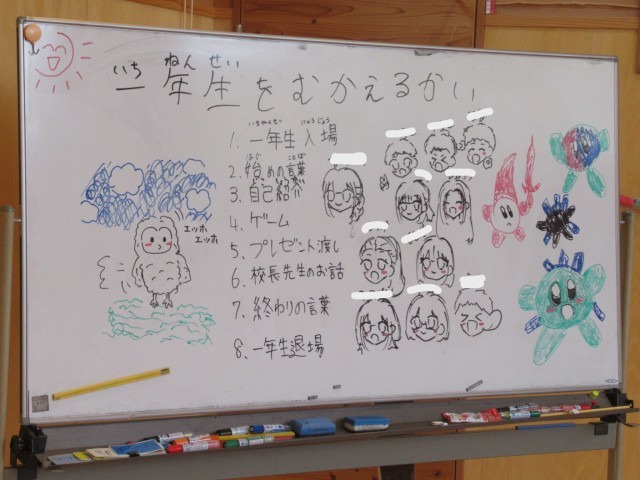 いち ねん せい
一年生をむかえるかい
いちねんせい にゅうじょう
1. 一年生入場
はじ ことば
2. 始めの言葉
3. 自己紹介
4. ゲーム
5. プレゼント渡し
6. 校長先生のお話
7. 終わりの言葉
8. 一年生退場
エッホ
エッホ